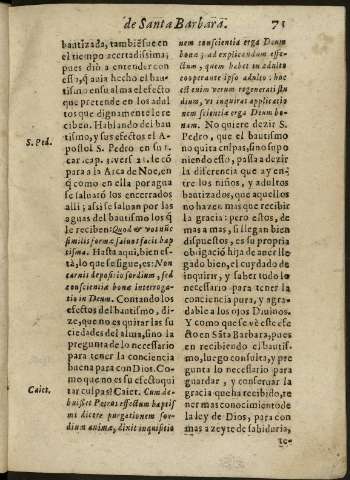 de Santa Barbara. 71
bautizada, tambiẽ fue en
el tiempo acertadissima;
pues diò a entender con
esso, q̃ auia hecho el bau-
tismo en su alma el efecto
que pretende en los adul
tos que dignamente le re
ciben. Hablando del bau
tismo, y sus efectos el A-
postol S. Pedro en su 1.
car. cap. 3. vers 21. le cõ
para a la Arca de Noe, en
q̃ como en ella por agua
se saluarõ los encerrados
alli; assi se saluan por las
aguas del bautismo los q̃
le reciben: Quod & vos nũc
similis formæ saluos facit bap
tisma. Hasta aqui, bien es-
tà, lo que se sigue, es: Non
carnis depositio sordium, sed
conscientiæ bonæ interroga-
tio in Deum. Contando los
efectos del bautismo, di-
ze, que no es quitar las su
ciedades del alma, sino la
pregunta de lo necessario
para tener la conciencia
buena para con Dios. Co-
mo que no es su efecto qui
tar culpas? Caiet. Cum de-
buisset Petrus effectum baptis
mi dicere purgationem sor-
dium animæ, dixit inquisitio
S. Ped.
Caiet.
nem conscientiæ erga Deum
bonæ; ad explicandum effe-
ctum, quem habet in adulto
cooperante ipso adulto: hoc
est enim verum regenerati stu
dium, vt inquirat applicatio
nem scientiæ erga Deum bo-
nam. No quiere dezir S.
Pedro, que el bautismo
no quita culpas, sino supo
niendo esso, passa a dezir
la diferencia que ay en-
tre los niños, y adultos
bautizados, que aquellos
no hazen mas que recibir
la gracia: pero estos, de
mas a mas, si llegan bien
dispuestos, es su propria
obligació hija de auer lle
gado bien, el cuydado de
inquirir, y saber todo lo
necessario para tener la
conciencia pura, y agra-
dable a los ojos Diuinos.
Y como que se vè este efe
cto en Sãta Barbara, pues
en recibiendo el bautis-
mo, luego consulta, y pre
gunta lo necessario para
guardar, y conseruar la
gracia que ha recibido, te
ner mas conocimiento de
la ley de Dios, para con
mas azeyte de sabiduria,
re-